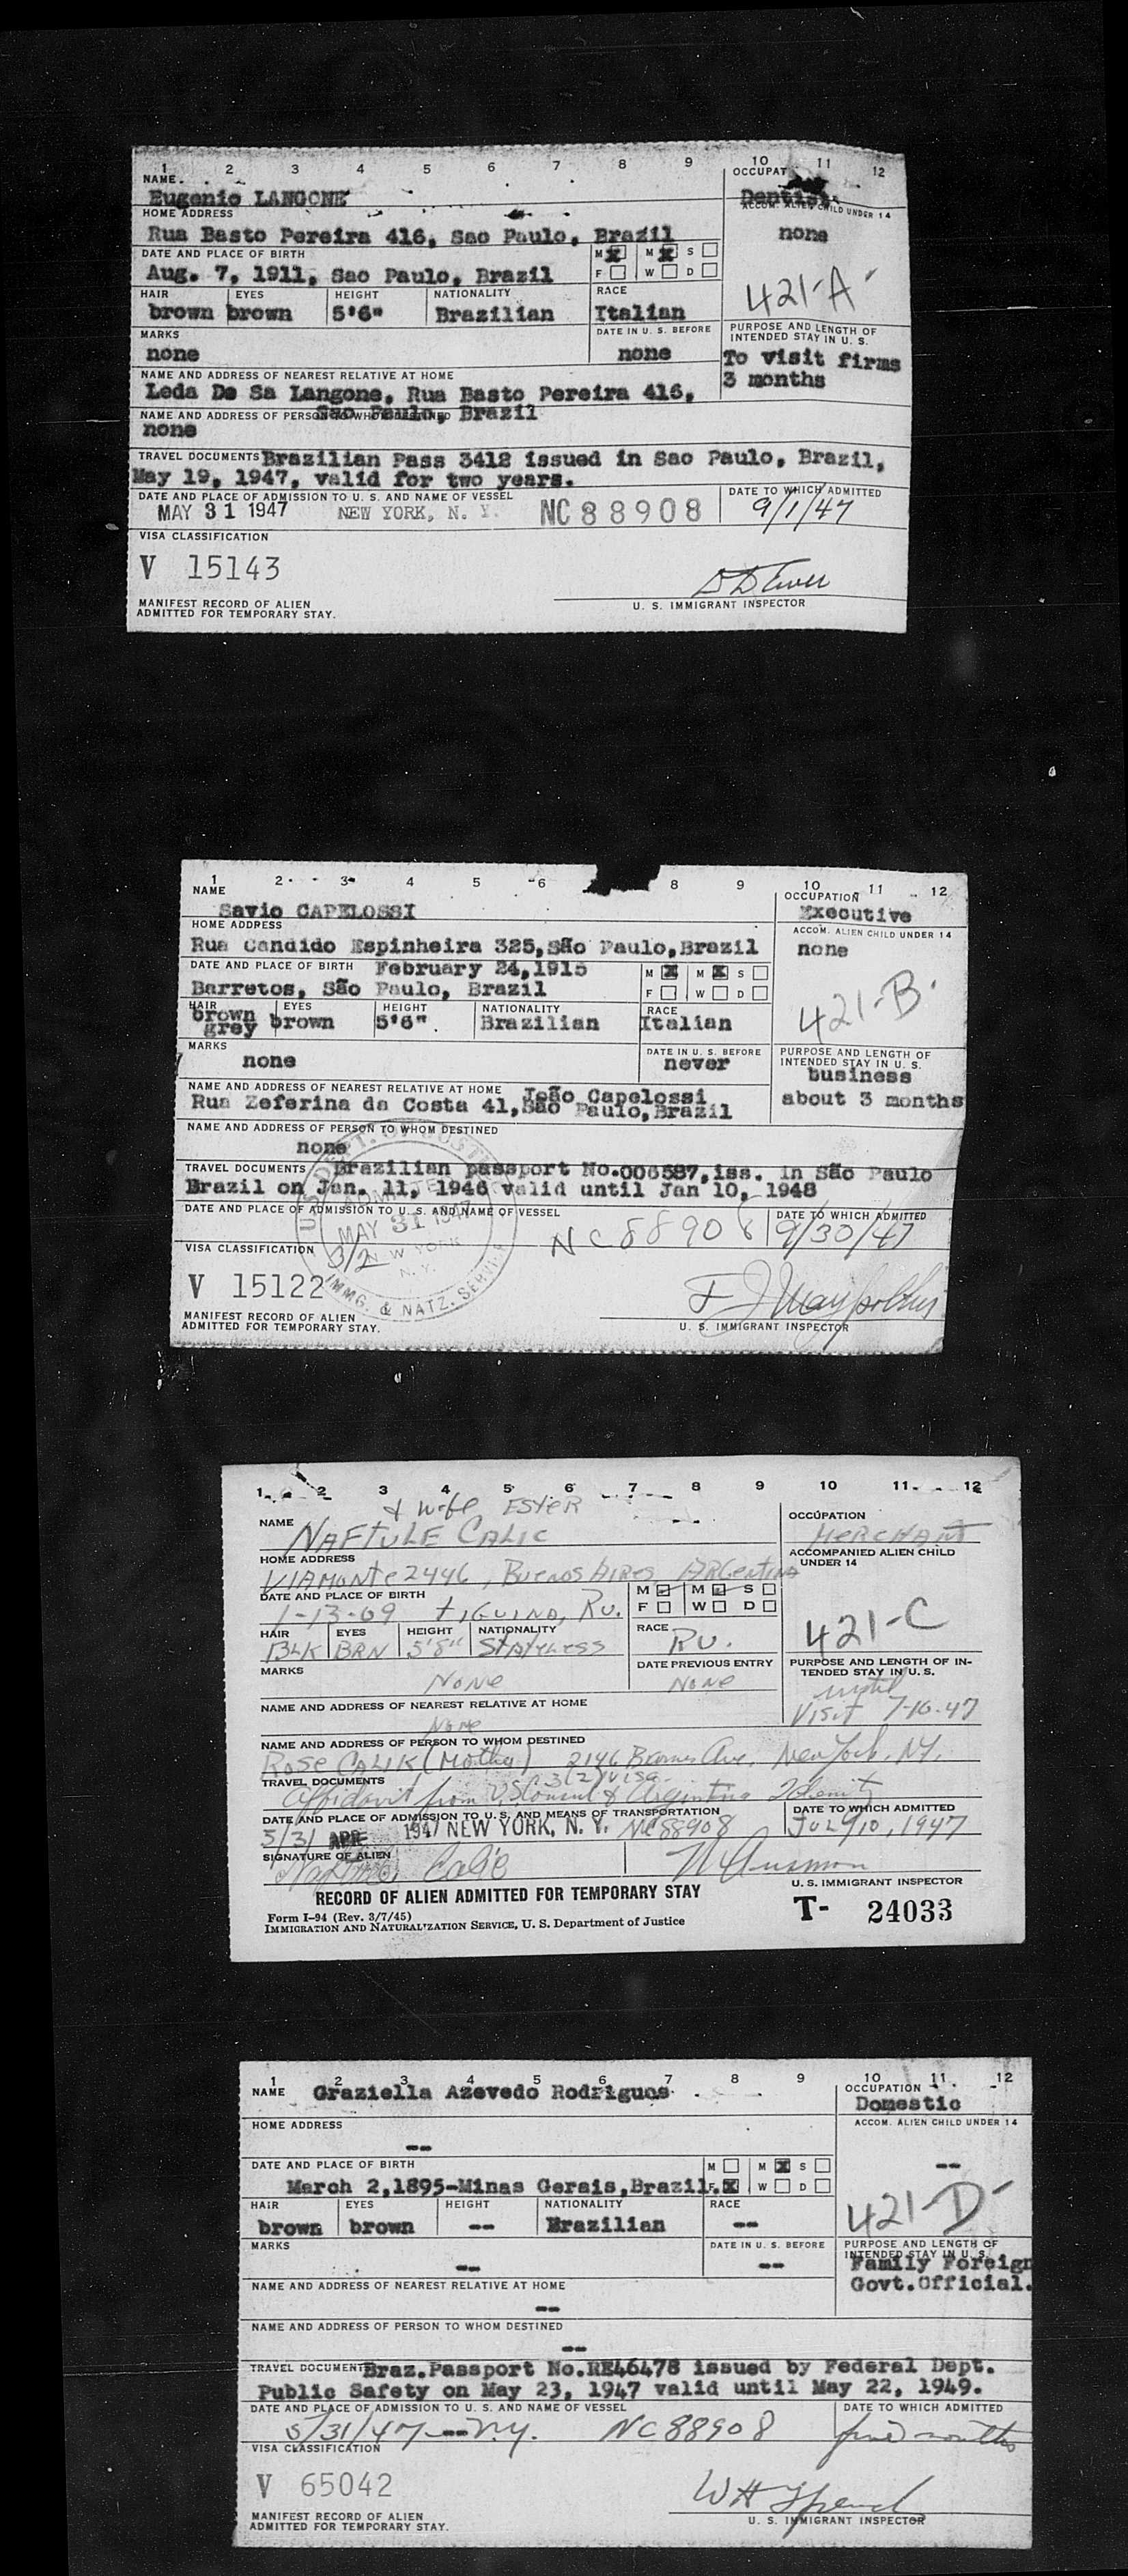 1 2 3 4 5 6 7 8 9 10 11 12
NAME OCCUPAT
Eugenio LANGONE Dentist
HOME ADDRESS ACCOM. ALIEN CHILD UNDER 14
Rua Basto Pereira 416, Sao Paulo, Brazil none
DATE AND PLACE OF BIRTH M X M X S
Aug. 7, 1911, Sao Paulo, Brazil F W D
421-A
HAIR EYES HEIGHT NATIONALITY RACE
brown brown 5'6" Brazilian Italian
MARKS DATE IN U. S. BEFORE PURPOSE AND LENGTH OF INTENDED STAY IN U. S.
none none To visit firms
3 months
NAME AND ADDRESS OF NEAREST RELATIVE AT HOME
Leda De Sa Langone, Rua Basto Pereira 416,
Sao Paulo, Brazil
NAME AND ADDRESS OF PERSON TO WHOM DESTINED
none
TRAVEL DOCUMENTS Brazilian Pass 3412 issued in Sao Paulo, Brazil,
May 19, 1947, valid for two years.
DATE AND PLACE OF ADMISSION TO U. S. AND NAME OF VESSEL DATE TO WHICH ADMITTED
MAY 31 1947 NEW YORK, N. Y. NC 88908 9/1/47
VISA CLASSIFICATION
V 15143
MANIFEST RECORD OF ALIEN U. S. IMMIGRANT INSPECTOR
ADMITTED FOR TEMPORARY STAY.
1 2 3 4 5 6 8 9 10 11 12
NAME OCCUPATION
Savio CAPELOSSI Executive
HOME ADDRESS ACCOM. ALIEN CHILD UNDER 14
Rua Candido Espinheira 325, São Paulo, Brazil none
DATE AND PLACE OF BIRTH February 24, 1915 M X M X S
Barretos, São Paulo, Brazil F W D
421-B
HAIR EYES HEIGHT NATIONALITY RACE
brown grey brown 5'6" Brazilian Italian
MARKS DATE IN U. S. BEFORE PURPOSE AND LENGTH OF INTENDED STAY IN U. S.
none never business
about 3 months
NAME AND ADDRESS OF NEAREST RELATIVE AT HOME João Capelossi
Rua Zeferina da Costa 41, São Paulo, Brazil
NAME AND ADDRESS OF PERSON TO WHOM DESTINED
none
TRAVEL DOCUMENTS Brazilian passport No. 006587, iss. in São Paulo
Brazil on Jan. 11, 1946 valid until Jan 10, 1948
DATE AND PLACE OF ADMISSION TO U. S. AND NAME OF VESSEL DATE TO WHICH ADMITTED
ADMITTED MAY 31 1947 NEW YORK N. Y. IMMG. & NATZ. SERVICE
NC 88908 9/30/47
VISA CLASSIFICATION 3/2
V 15122
MANIFEST RECORD OF ALIEN U. S. IMMIGRANT INSPECTOR
ADMITTED FOR TEMPORARY STAY.
1 2 3 4 5 6 7 8 9 10 11 12
& wife ESTER
NAME NAFTULE CALIC OCCUPATION MERCHANT
HOME ADDRESS ACCOMPANIED ALIEN CHILD UNDER 14
VIAMONTE 2446, BUENOS AIRES, ARGENTINA
DATE AND PLACE OF BIRTH M M S
1-13-09 TIGUINA, RU. F W D
421-C
HAIR EYES HEIGHT NATIONALITY RACE
BLK BRN 5'8" STATELESS RU.
MARKS DATE PREVIOUS ENTRY PURPOSE AND LENGTH OF INTENDED STAY IN U. S.
None None until
Visit 7-10-47
NAME AND ADDRESS OF NEAREST RELATIVE AT HOME
None
NAME AND ADDRESS OF PERSON TO WHOM DESTINED
Rose CALIK (Mother) 2146 Ave. New York, N.Y.
TRAVEL DOCUMENTS 3(2) visa
Affidavit from U.S. Consul & Argentina
DATE AND PLACE OF ADMISSION TO U. S. AND MEANS OF TRANSPORTATION DATE TO WHICH ADMITTED
5/31 APR 1947 NEW YORK, N. Y. NC 88908 JULY 10, 1947
SIGNATURE OF ALIEN
Naftule Calic
U. S. IMMIGRANT INSPECTOR
RECORD OF ALIEN ADMITTED FOR TEMPORARY STAY
T- 24033
Form I-94 (Rev. 3/7/45)
IMMIGRATION AND NATURALIZATION SERVICE, U. S. Department of Justice
1 2 3 4 5 6 7 8 9 10 11 12
NAME Graziella Azevedo Rodrigues OCCUPATION
Domestic
HOME ADDRESS ACCOM. ALIEN CHILD UNDER 14
-- --
DATE AND PLACE OF BIRTH M M X S
March 2, 1895-Minas Gerais, Brazil. F X W D
421-D
HAIR EYES HEIGHT NATIONALITY RACE
brown brown -- Brazilian --
MARKS DATE IN U. S. BEFORE PURPOSE AND LENGTH OF INTENDED STAY IN U. S.
-- -- Family Foreign
Govt. Official.
NAME AND ADDRESS OF NEAREST RELATIVE AT HOME
--
NAME AND ADDRESS OF PERSON TO WHOM DESTINED
--
TRAVEL DOCUMENT Braz. Passport No. RE46478 issued by Federal Dept.
Public Safety on May 23, 1947 valid until May 22, 1949.
DATE AND PLACE OF ADMISSION TO U. S. AND NAME OF VESSEL DATE TO WHICH ADMITTED
5/31/47 -- N.Y. NC 88908 months
VISA CLASSIFICATION
V 65042
MANIFEST RECORD OF ALIEN U. S. IMMIGRANT INSPECTOR
ADMITTED FOR TEMPORARY STAY.